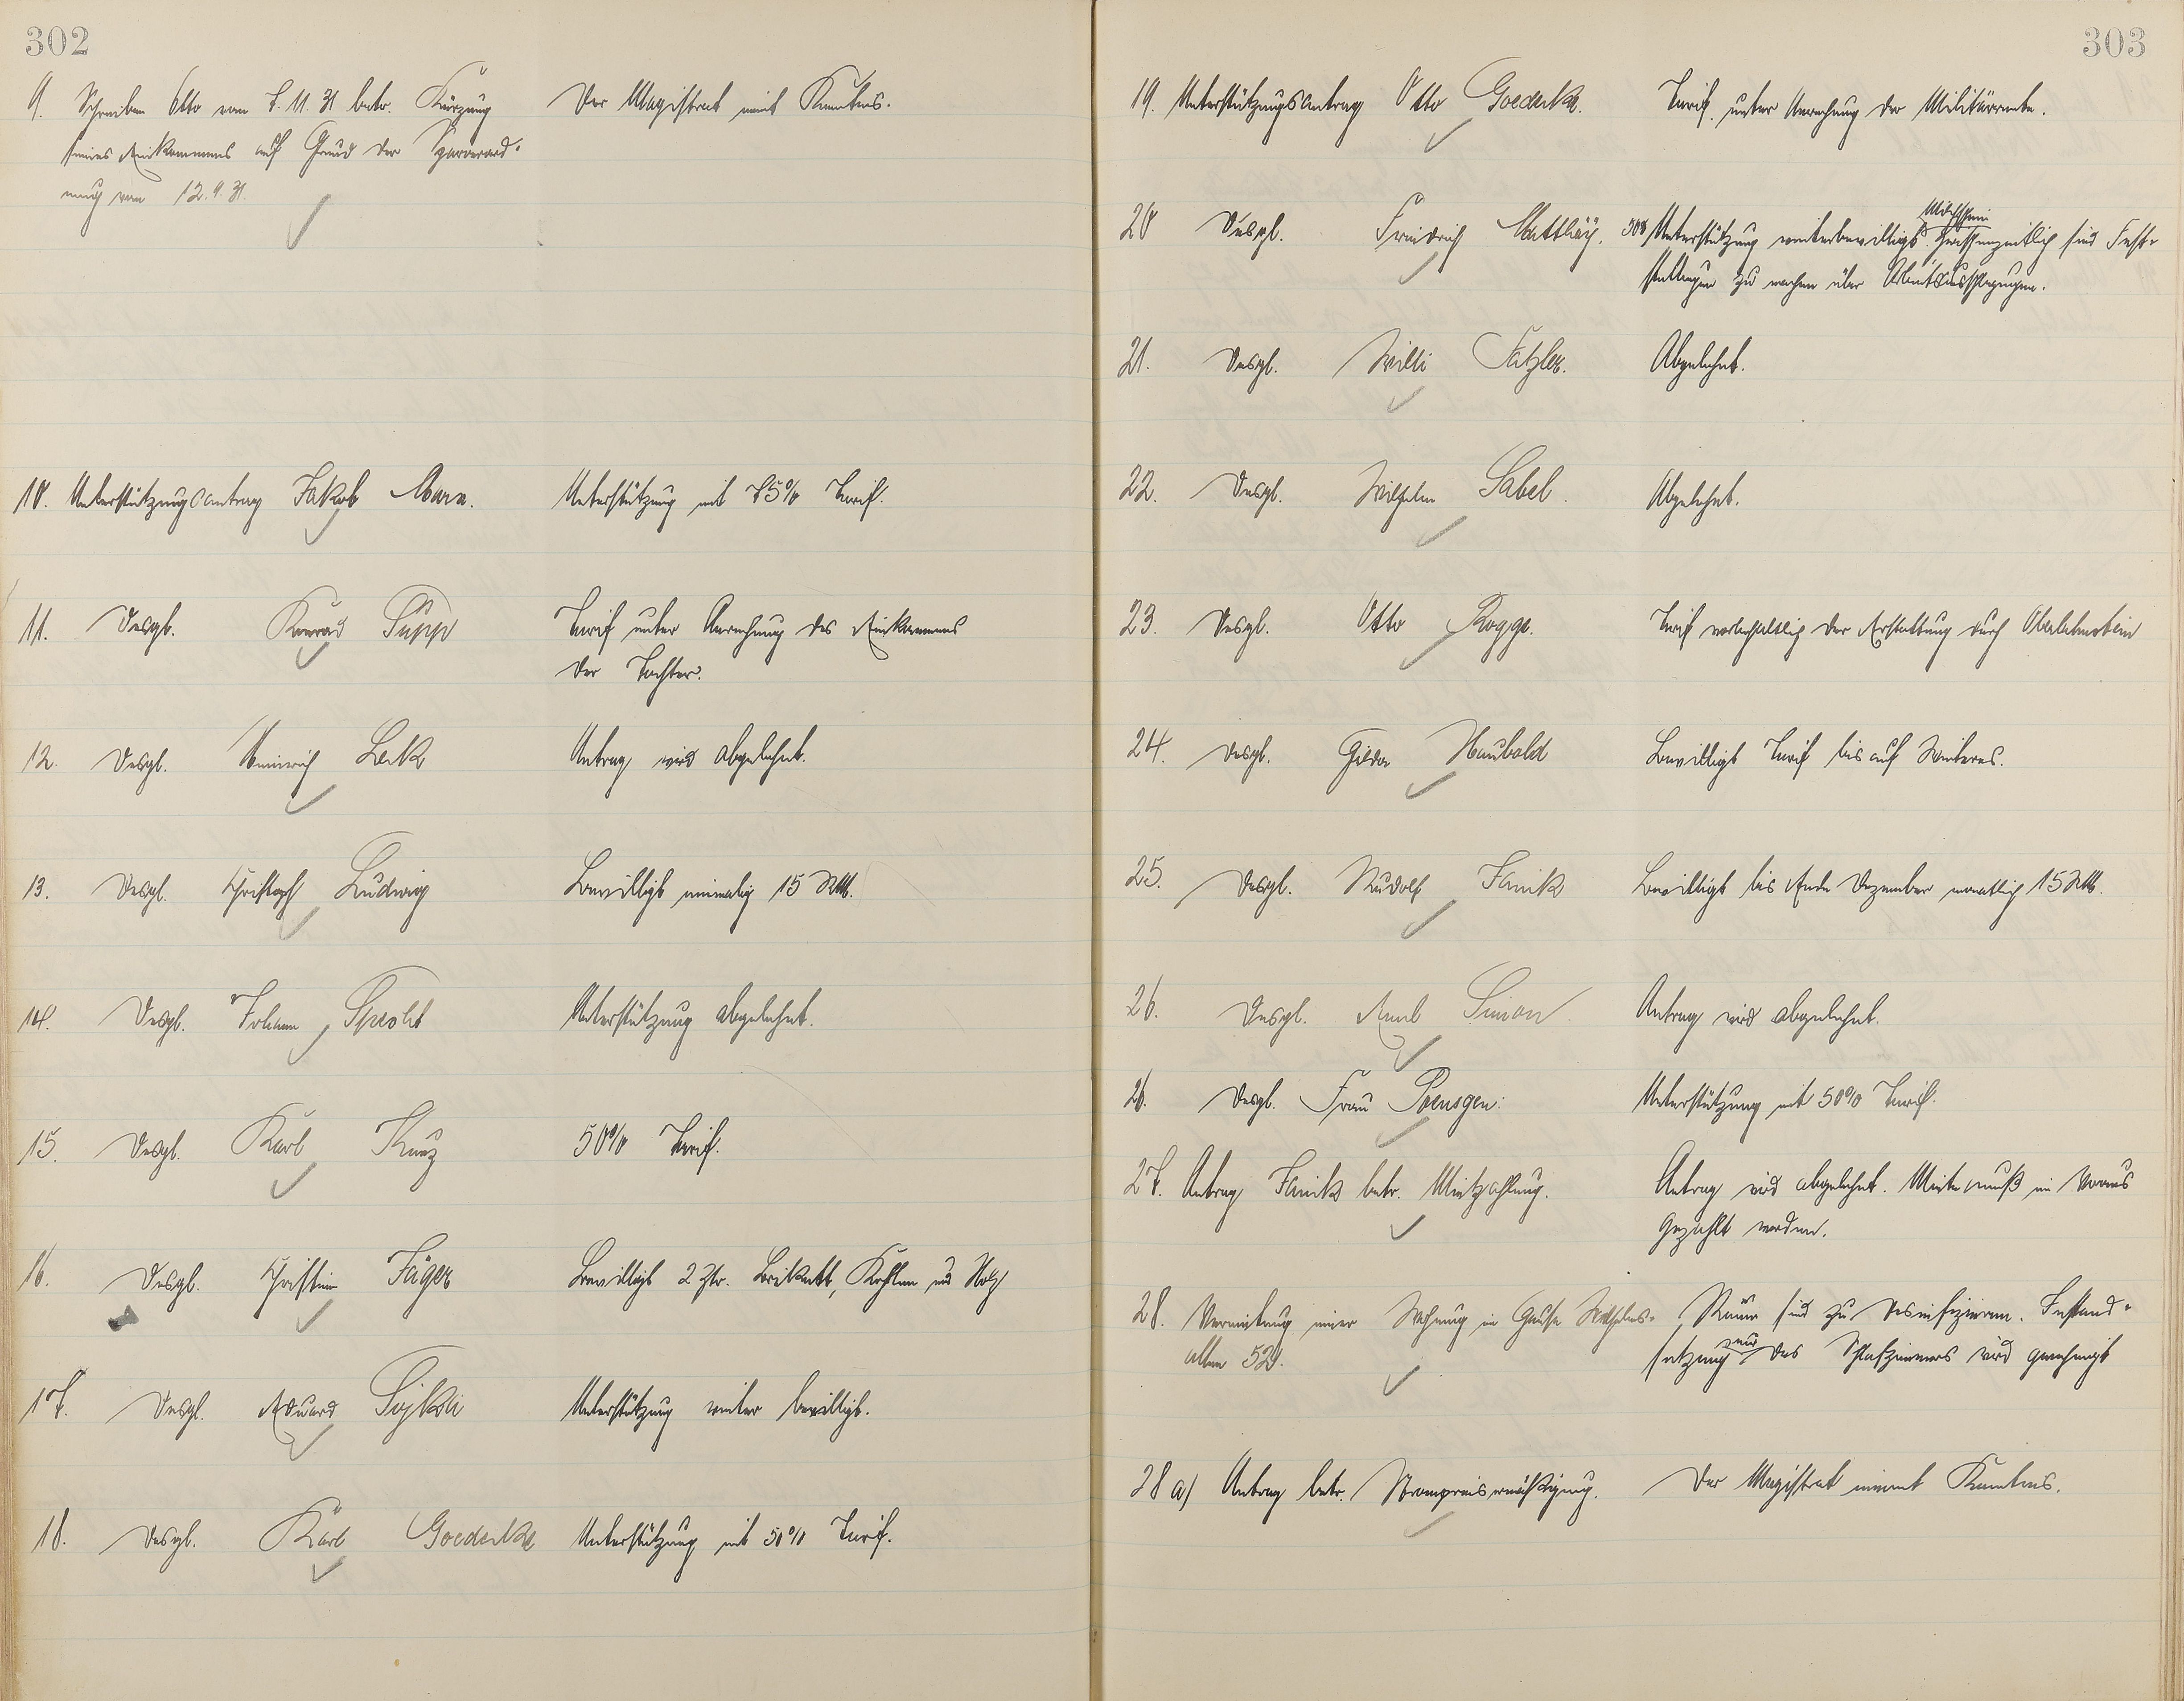 302
9. Schreiben Otto vom 7.11.31 betr. Kürzung Der Magistrat nimt Kenntnis.
seines Einkommens auf Grund der Sparverord-
nung vom 12.9.31.
10. Unterstützungsantrag Jakob Marx. Unterstützung mit 75% Tarif.
11. Desgl. Konrad Supp Tarif unter Anrechnung des Einkommens
der Tochter.
12. Desgl. Heinrich Leik Antrag wird abgelehnt.
13. Desgl. Christoph Ludwig Bewilligt einmalig 15 RM.
14. Desgl. Johann Specht Unterstützung abgelehnt.
15. Desgl. Karl Kunz 50% Tarif.
16. Desgl. Christine Jäger Bewilligt 2 Ztr. Brikett, Kohlen und Holz
17. Desgl. Eduard Unterstützung weiter bewilligt.
18. Desgl. Karl Goedecke Unterstützung mit 50% Tarif.
303
19. Unterstützungsantrag Otto Goedecke. Tarif unter Anrechnung der Militärrente.
20 Desgl. Friedrich Mattläy. Unterstützung weiterbewilligt. sind Fest-
stellungen zu machen über
21. Desgl. Willi Fatzler. Abgelehnt.
22. Desgl. Wilhelm Sabel. Abgelehnt.
23. Desgl. Otto Rogge. Tarif vorbehaltlich der Erstattung durch Oberlahnstein
24. Desgl. Gilda Haubold Bewilligt Tarif bis auf Weiteres.
25. Desgl. Rudolf Janik Bewilligt bis Ende Dezember monatlich 15 RM.
26. Desgl. Emil Simon. Antrag wird abgelehnt.
26. Desgl. Frau Poensgen. Unterstützung mit 50% Tarif.
27. Antrag Janik betr. Mietzahlung. Antrag wird abgelehnt. Miete muß im Voraus
gezahlt werden.
28. Vermietung einer Wohnung im Hause Wilhelms- Räume sind zu desinfizieren. Instand-
allee 52 setzung nur des Schlafzimmers wird genehmigt
28 a) Antrag betr. Strompreisermäßigung. Der Magistrat nimmt Kenntnis.